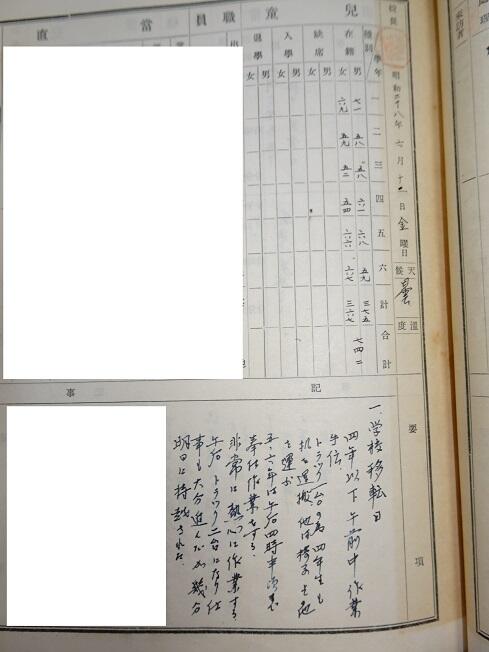 校長
昭和二十八年 七月 十 日 金曜日 天候 曇 温度
児童 職員 当直
種別 学年 一 二 三 四 五 六 計 合計
在籍 男 七一 五八 五八 六一 六八 五九 三七五 七四二
女 六九 五九 五二 五四 六六 六七 三六七
缺席 男 女
入學 男 女
退學 男 女
記事
要項
一、学校移転日
四年以下 午前中 作業
手伝
トラック一台の為四年生も
机を運搬 他は椅子を
を運ぶ
五、六年は午后四時半頃まで
奉仕作業をする
非常に熱心に作業する
午后トラック二台になり仕
事も大分進んだが幾分
明日に持越された